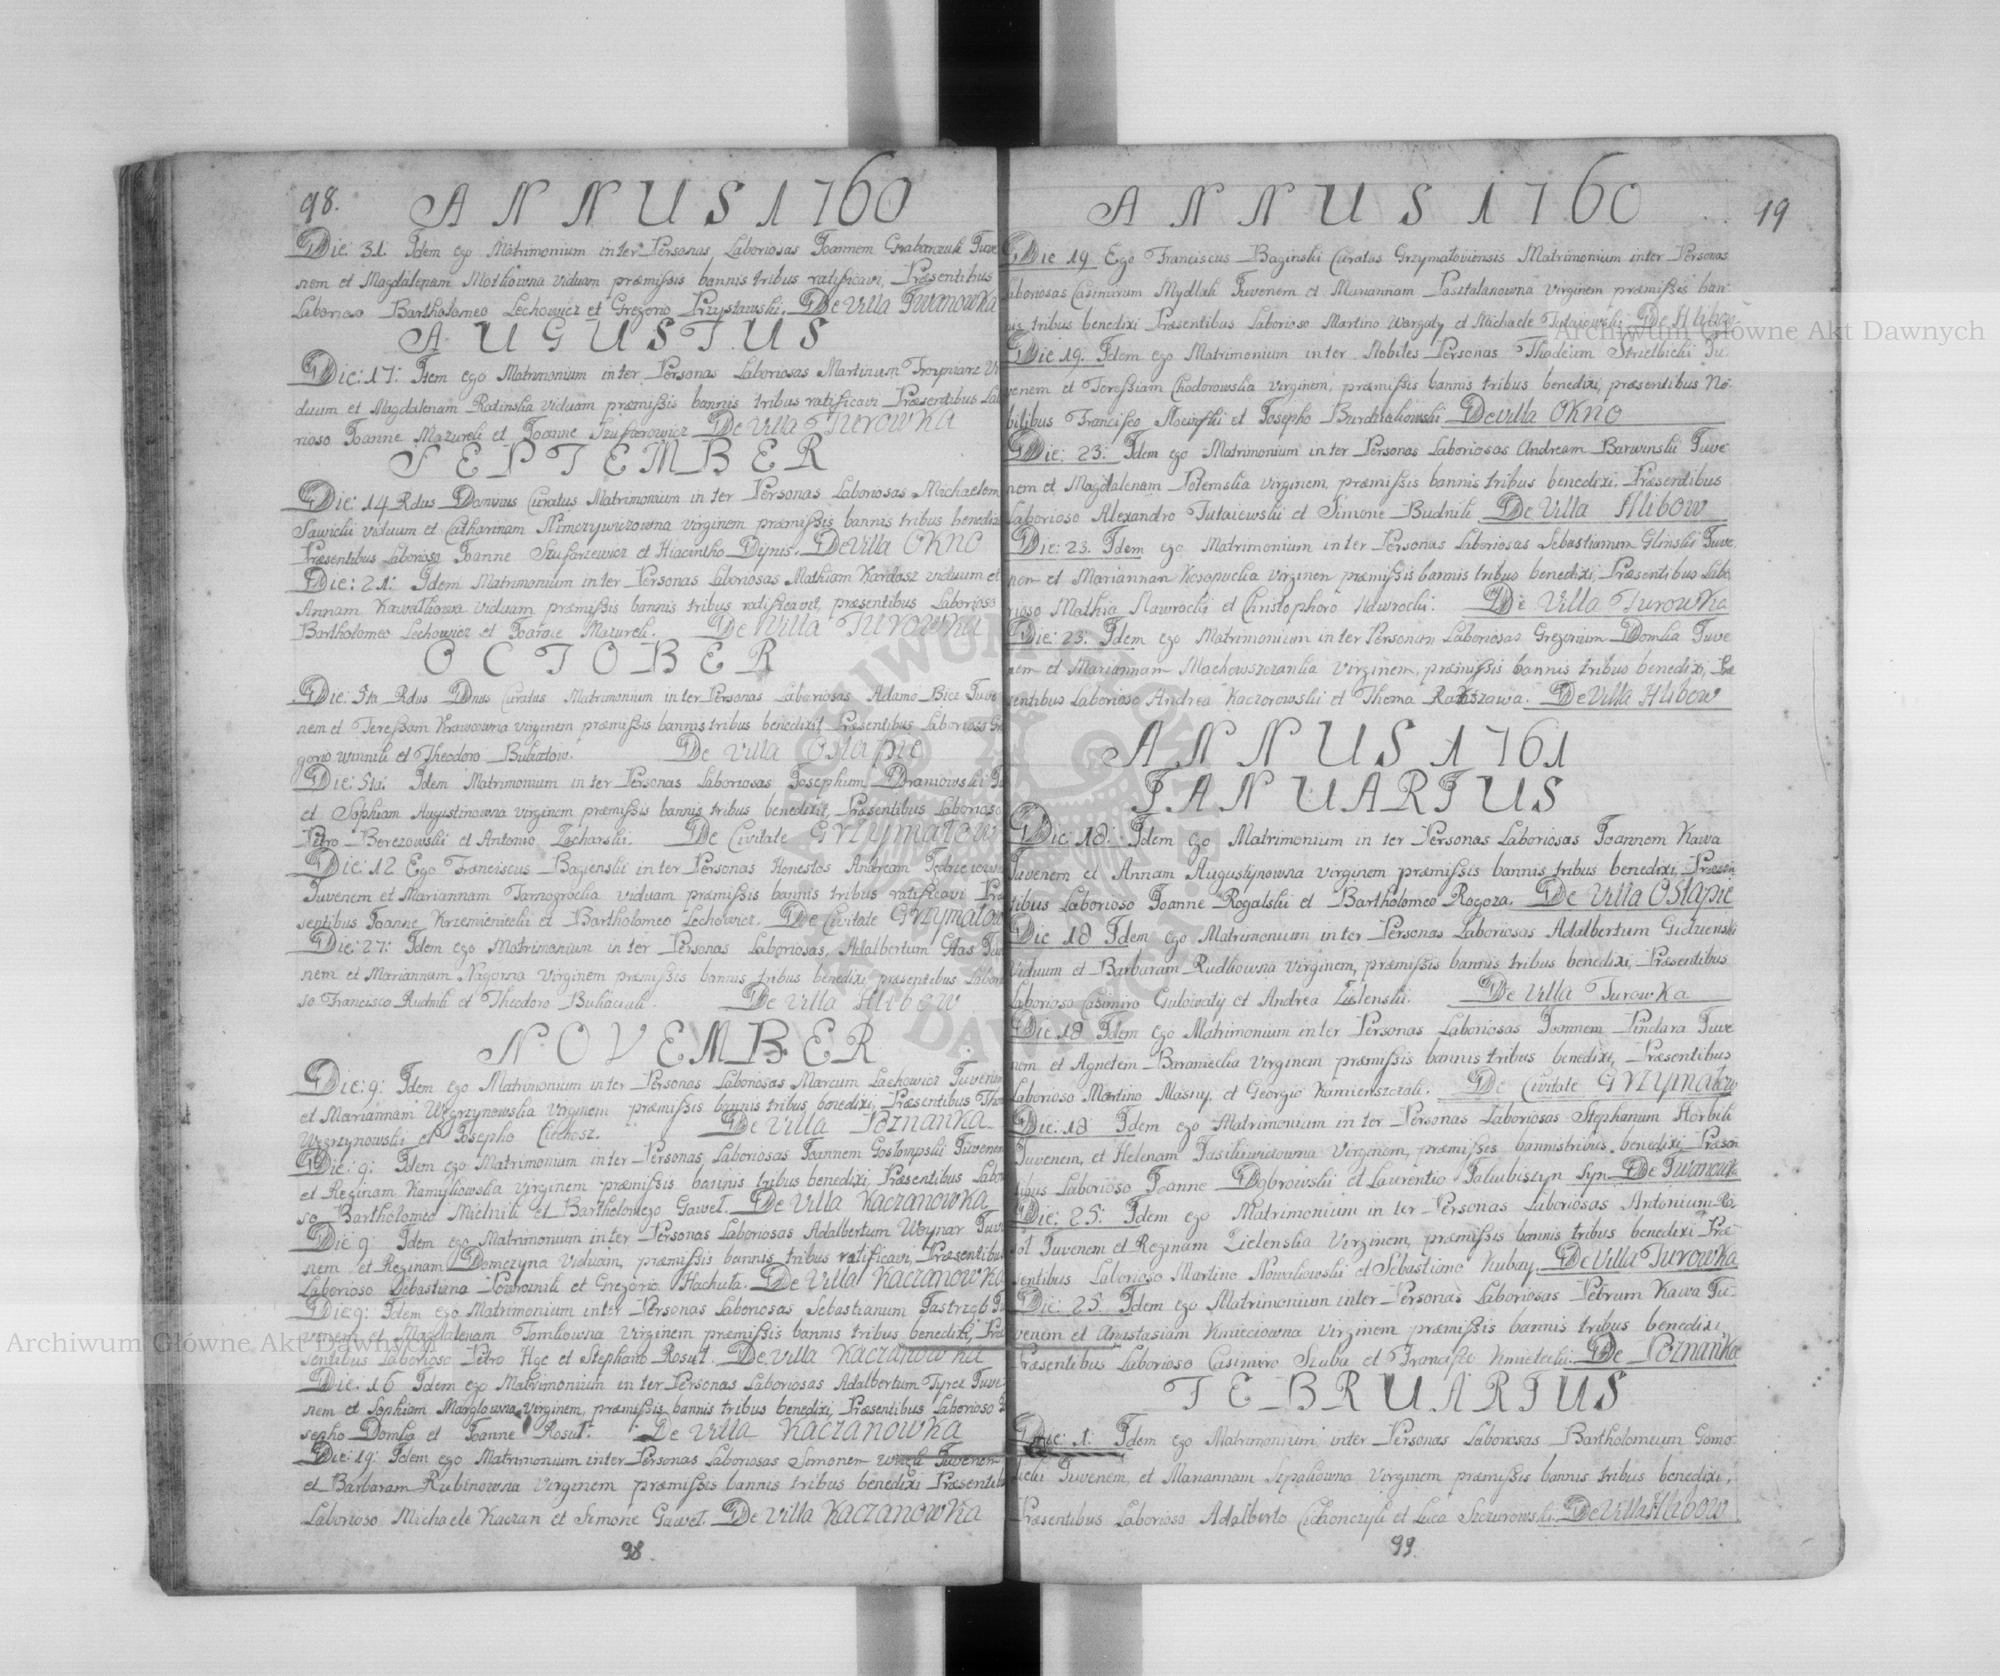 98.
ANNUS 1760
Die: 31. Idem ego Matrimonium inter Personas Laboriosas Joannem Grabarczuk Juve
nem et Magdalenam Motkowna viduam præmissis bannis tribus ratificavi, Præsentibus
Laborioso Bartholomeo Lechowicz et Gregorio Przystawski. De Villa Iwanowka
AUGUSTUS
Die: 17: Item ego Matrimonium inter Personas Laboriosas Martinum Vi
duum et Magdalenam Ratinska viduam præmissis bannis tribus ratificavi Præsentibus Lab
rioso Joanne Mazureli et Joanne De Villa TUROWKA
SEPTEMBER
Die: 14 Rdus Dominus Curatus Matrimonium inter Personas Laboriosas Michaelem
Sawicki viduum et Catharinam virginem præmissis bannis tribus benedixi
Præsentibus Laborioso Joanne et Hiacintho De Villa OKNO
Die: 21: Idem Matrimonium inter Personas Laboriosas Mathiam Kardasz viduum et
Annam viduam præmissis bannis tribus ratificavit, præsentibus Laborioso
Bartholomeo Lechowicz et Joanne Mazureli. De Villa TUROWKA
OCTOBER
Die: 5ta Rdus Dnus Curatus Matrimonium inter Personas Laboriosas Adamo Bicz Juve
nem et Teressam Krawcowna virginem præmissis bannis tribus benedixit Præsentibus Laborioso Gre
gorio Winnik et Theodoro De Villa Ostapie
Die: 5ta: Idem Matrimonium inter Personas Laboriosas Josephum Draniowski Ju
et Sophiam Augustinowna virginem præmissis bannis tribus benedixit, Præsentibus Laborioso
Petro Berezowski et Antonio Zacharski. De Civitate GRZYMAŁOW
Die: 12 Ego Franciscus Bagienski inter Personas Honestos Andream
Juvenem et Mariannam Tarnogrocka viduam præmissis bannis tribus ratificavi Præ
sentibus Joanne Krzemieniecki et Bartholomeo Lechowicz. De Civitate GRZYMAŁOW
Die: 27: Idem ego Matrimonium inter Personas Laboriosas, Adalbertum Juve
nem et Mariannam virginem præmissis bannis tribus benedixi præsentibus Labori
so Francisco Rudnik et Theodoro De Villa HLIBOW
NOVEMBER
Die: 9: Idem ego Matrimonium inter Personas Laboriosas Marcum Lachowicz Juvenem
et Mariannam Węgrzynowska virginem præmissis bannis tribus benedixi, Præsentibus Tho
Węgrzynowski et Josepho Ciechosz. De Villa POZNANKA
Die: 9: Idem ego Matrimonium inter Personas Laboriosas Joannem Juvenem
et Reginam virginem præmissis bannis tribus benedixi, Præsentibus Labo
so Bartholomeo Mielnik et Bartholomeo Gaweł. De Villa KACZANOWKA
Die 9: Idem ego Matrimonium inter Personas Laboriosas Adalbertum Woynar Juv
nem et Reginam Domczyna Viduam, præmissis bannis tribus ratificavi, Præsentibus
Laborioso Sebastiano Powroznik et Gregorio Hachuta. De Villa KACZANOWKA
Die 9: Idem ego Matrimonium inter Personas Laboriosas Sebastianum Jastrząb Ju
venem et Magdalenam Tomkowna Virginem præmissis bannis tribus benedixi, Præ
sentibus Laborioso Petro et Stephano Rosuł. De Villa KACZANOWKA
Die. 16 Idem ego Matrimonium inter Personas Laboriosas Adalbertum Juve
nem et Sophiam Marglowna virginem, præmissis bannis tribus benedixi, Præsentibus Laborioso Jo
sepho Domka et Joanne Rosuł. De Villa KACZANOWKA
Die: 19: Idem ego Matrimonium inter Personas Laboriosas Simonem Juvenem
et Barbaram Rubinowna virginem præmissis bannis tribus benedixi Præsentib
Laborioso Michaele Kaczan et Simone Gaweł. De Villa KACZANOWKA
98.
ANNUS 1760
19
Die 19 Ego Franciscus Baginski Curatus Grzymałoviensis Matrimonium inter Personas
Laboriosas Casimirum Mydlak Juvenem et Mariannam Pasztalanowna virginem præmissis ban
nis tribus benedixi Præsentibus Laborioso Martino Wargaty et Michaele Tutaiewski. De Hlibow
Die: 19. Idem ego Matrimonium inter Nobiles Personas Thadeum Strzelbicki Ju
venem et Teressiam Chodorowska virginem, præmissis bannis tribus benedixi, præsentibus No
bilibus Francisco et Josepho De villa OKNO
Die: 23: Idem ego Matrimonium inter Personas Laboriosas Andream Barwinski Juve
nem et Magdalenam Potemska virginem, præmissis bannis tribus benedixi, Præsentibus
Laborioso Alexandro Tutaiewski et Simone Budnik De Villa HLIBOW
Die: 23. Idem ego Matrimonium inter Personas Laboriosas Sebastianum Glinski Juve
nem et Mariannam Kosopucka virginem præmissis bannis tribus benedixi, Præsentibus Labo
rioso Mathia Nawrocki et Christophoro Nawrocki. De Villa Turowka
Die: 23: Idem ego Matrimonium inter Personas Laboriosas Gregorium Domka Juve
nem et Mariannam virginem, præmissis bannis tribus benedixi, Præ
sentibus Laborioso Andrea Kaczorowski et Thoma Rakszawa. De Villa HLIBOW
ANNUS 1761
JANUARIUS
Die: 18: Idem ego Matrimonium inter Personas Laboriosas Joannem Kawa
Juvenem et Annam Augustynowna virginem præmissis bannis tribus benedixi, Præsen
tibus Laborioso Joanne Rogalski et Bartholomeo Rogoza. De Villa OSTAPIE
Die 18 Idem ego Matrimonium inter Personas Laboriosas Adalbertum Gidzienski
Viduum et Barbaram Rudkowna Virginem, præmissis bannis tribus benedixi, Præsentibus
Laborioso Casimiro Gulowaty et Andrea Zielenski. De Villa Turowka
Die 18 Idem ego Matrimonium inter Personas Laboriosas Joannem Pindara Juve
nem et Agnetem Baraniecka virginem præmissis bannis tribus benedixi, Præsentibus
Laborioso Martino Masny, et Georgio De Civitate GRZYMAŁOW
Die: 18 Idem ego Matrimonium inter Personas Laboriosas Stephanum Horbik
Juvenem, et Helenam virginem, præmissis bannis tribus benedixi, Præsen
tibus Laborioso Joanne Dąbrowski et Laurentio De Iwanowka
Die: 25: Idem ego Matrimonium inter Personas Laboriosas Antonium
Juvenem et Reginam Zielenska Virginem, præmissis bannis tribus benedixi Præ
sentibus Laborioso Martino Nowakowski et Sebastiano Kubay. De Villa Turowka
Die: 25: Idem ego Matrimonium inter Personas Laboriosas Petrum Kawa Ju
venem et Anastasiam Kmieciowna virginem præmissis bannis tribus benedixi
Præsentibus Laborioso Casimiro Szuba et Francisco Kmiecicki. De POZNANKA
FEBRUARIUS
Die: 1: Idem ego Matrimonium inter Personas Laboriosas Bartholomeum Gomo
licki Juvenem, et Mariannam Virginem præmissis bannis tribus benedixi,
Præsentibus Laborioso Adalberto et Luca Szczurowski. De Villa HLIBOW
99.
Archiwum Główne Akt Dawnych
Archiwum Główne Akt Dawnych
ARCHIWUM GŁÓWNE AKT DAWNYCH